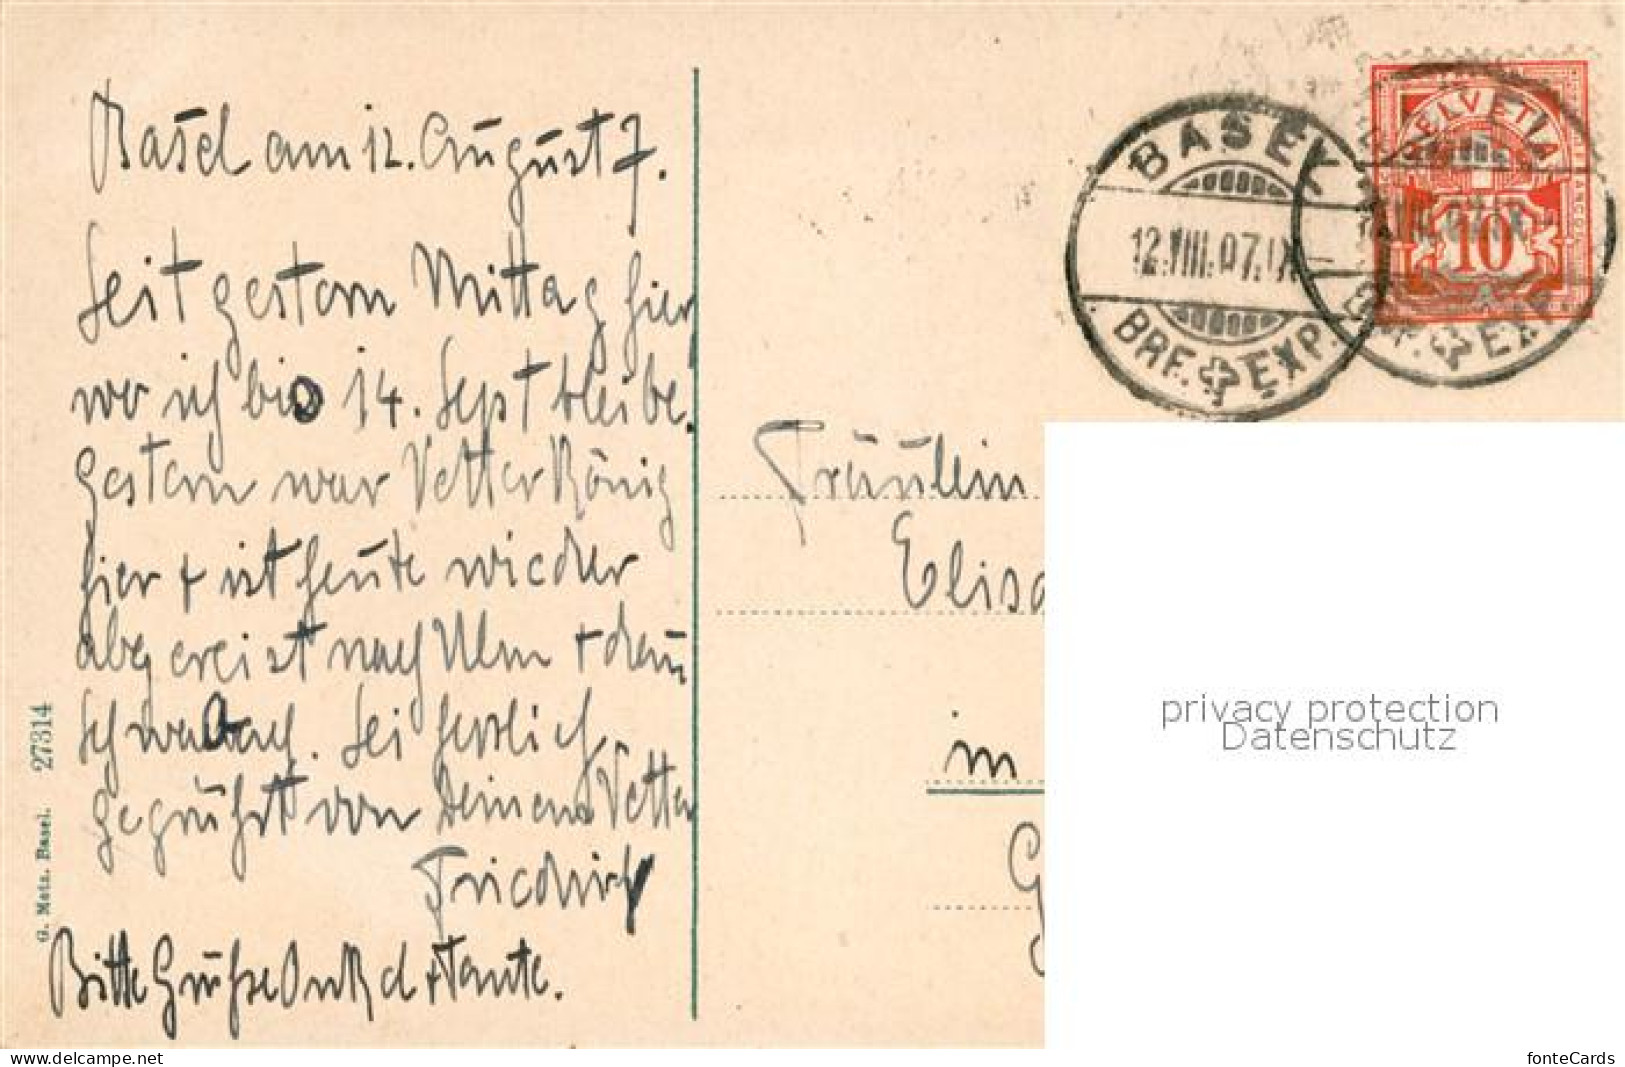 Basel am 12. August 7.
Seit gestern Mittag hier
wo ich bis 14. Sept bleibe.
Gestern war Vetter König
hier + ist heute wieder
abgereist nach Ulm + dann
Schwabach. Sei herzlich
gegrüßt von Deinem Vetter
Friedrich
Bitte Grüße Onkel + Tante.
G. Metz. Basel. 27314
BASEL
12.VIII.07.IX
BRF. EXP.
HELVETIA
FRANCO
10
BRF. EXP.
Fräulein
Elisa
in
G
privacy protection
Datenschutz
www.delcampe.net
fonteCards